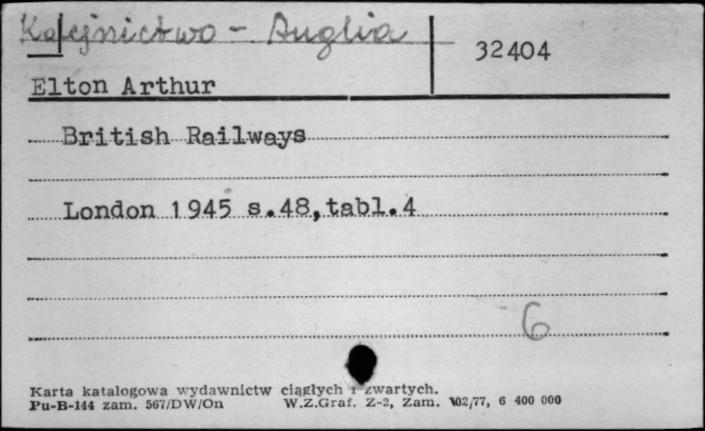 Kolejnictwo - Anglia
32404
Elton Arthur
British Railways
London 1945 s.48,tabl.4
6
Karta katalogowa wydawnictw ciągłych i zwartych.
Pu-B-144 zam. 567/DW/On W.Z.Graf. Z-2, Zam. 102/77, 6 400 000